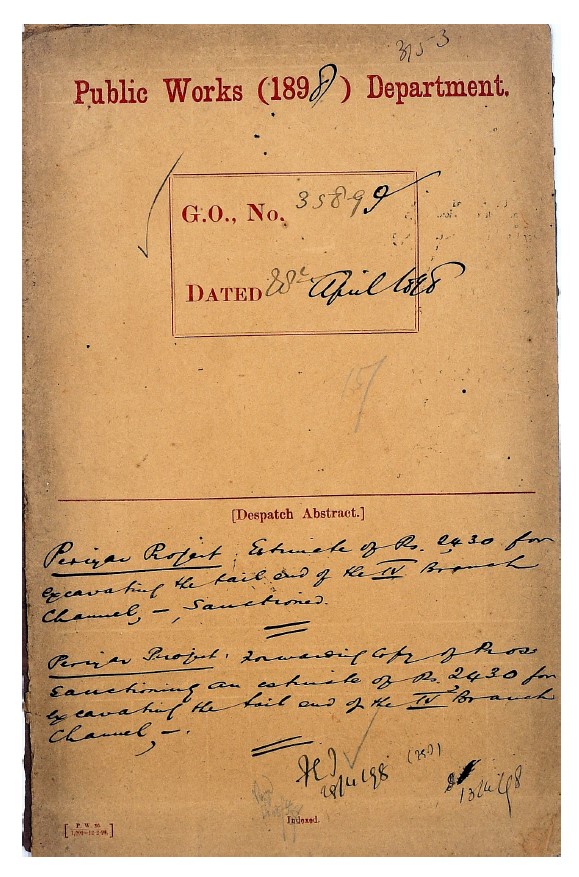 3753
Public Works (1898) Department.
G.O., No. 358 99
DATED 28th April 1898
15/
[Despatch Abstract.]
Periyar Project. Estimate of Rs. 2430 for
excavating the tail end of the IV Branch
Channel, —, Sanctioned.
Periyar Project. Forwarding copy of Procs
Sanctioning an estimate of Rs. 2430 for
excavating the tail end of the IV Branch
Channel, —.
28/4/98
Indexed.
[P. W. D.